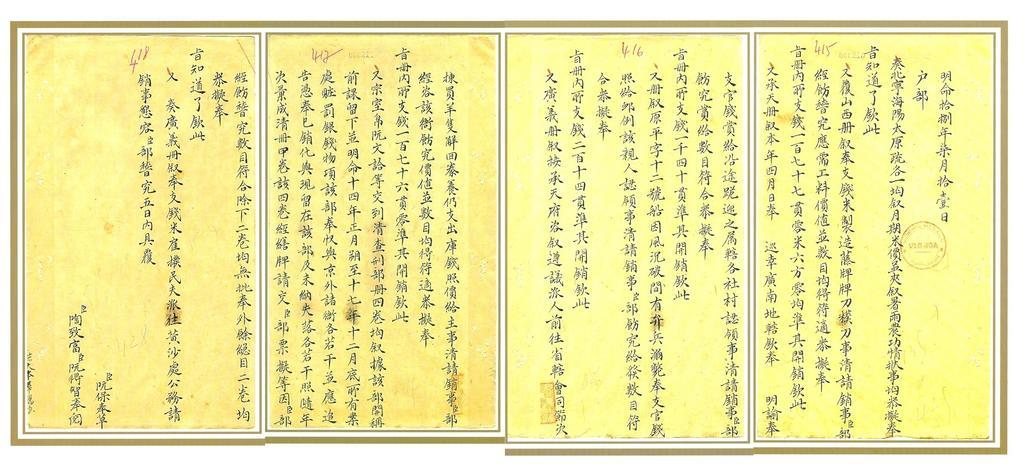 415
明命拾捌年柒月拾壹日
户部
奏北寧海陽太原疏各一均叙月期米價並夾叙暑雨農功情狀事均恭擬奉
旨知道了欽此
又覆山西册叙奉支錢米製造藤牌牌刀模刀事清請銷事臣部
經飭詧究應當工料價值並數目均得符適恭擬奉
旨册内所支錢一百七十七貫零米六方零均準其開銷欽此
又承天册叙本年四月日奉 巡幸廣南地轄欽奉 明諭奉
416
支官錢賞給沿途跪迎之屬轄各社村認領事清請銷事臣部
飭究賞給數目符合恭擬奉
旨册内所支錢一千四十貫準其開銷欽此
又册叙原平字十二號船因風沉破間有弁兵溺斃奉支官錢
照給卹例該親人認領事清請銷事臣部飭究給發數目符
合恭擬奉
旨册内所支錢二百十四貫準其開銷欽此
又廣義册叙接承天府咨叙遵議派人前往省轄會同節次
417
揀買羊隻解回豢養仍支出庫錢照價給主事清請銷事臣部
經咨該衙飭究價值並數目均得符適恭擬奉
旨册内所支錢一百七十六貫零準其開銷欽此
又宗室帛阮文詥等交到清查刑部册四卷均叙據該部間稱
前課留下並明命十四年正月朔至十七年十二月底所有案
處贓罰銀錢物項該部奉收與京外諸衙各若干並應追
告憑奉已銷化與現留在該部及未納失落各若干照隨年
次彙成清册甲卷該四卷經繕牌請交臣部票擬等因臣部
418
經飭詧究數目符合除下二卷均無批奉外餘總目二卷均
恭擬奉
旨知道了欽此
又 奏廣義册叙奉支錢米雇撥民夫派往黄沙處公務請
銷事懇容臣部詧究五日内具覆
臣阮保奉草
臣陶致富臣阮得智奉閲